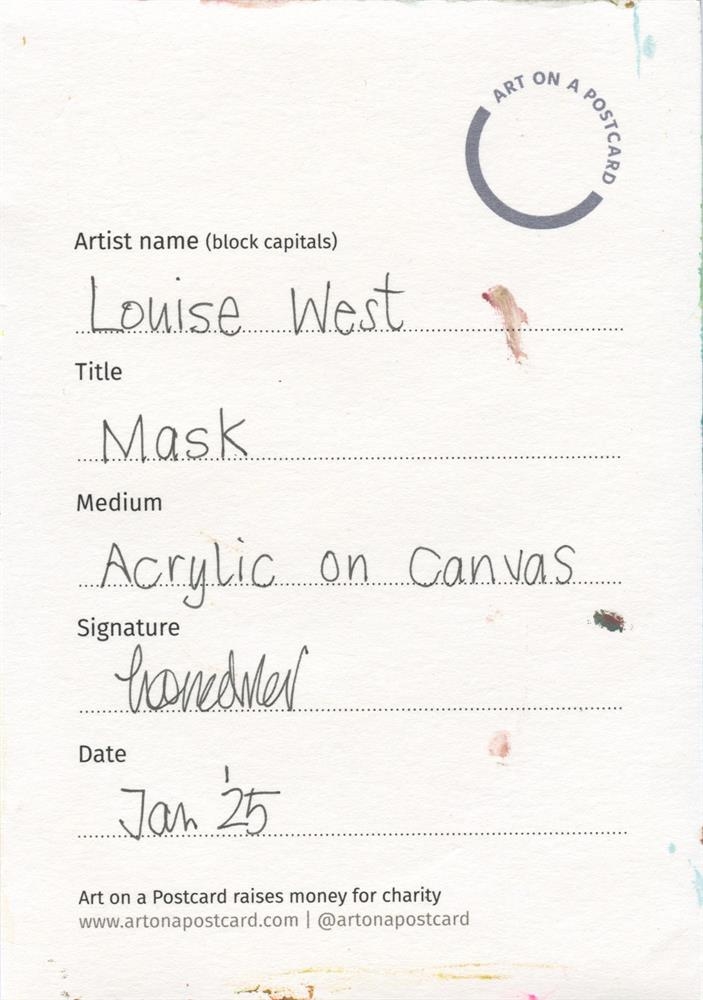 ART ON A POSTCARD
Artist name (block capitals)
Louise West
Title
Mask
Medium
Acrylic on Canvas
Signature
Date
Jan '25
Art on a Postcard raises money for charity
www.artonapostcard.com | @artonapostcard